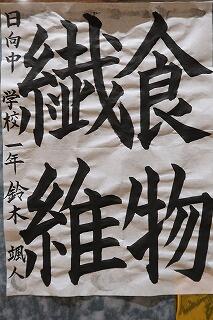 食物
繊維
日向中学校一年 鈴木 颯人